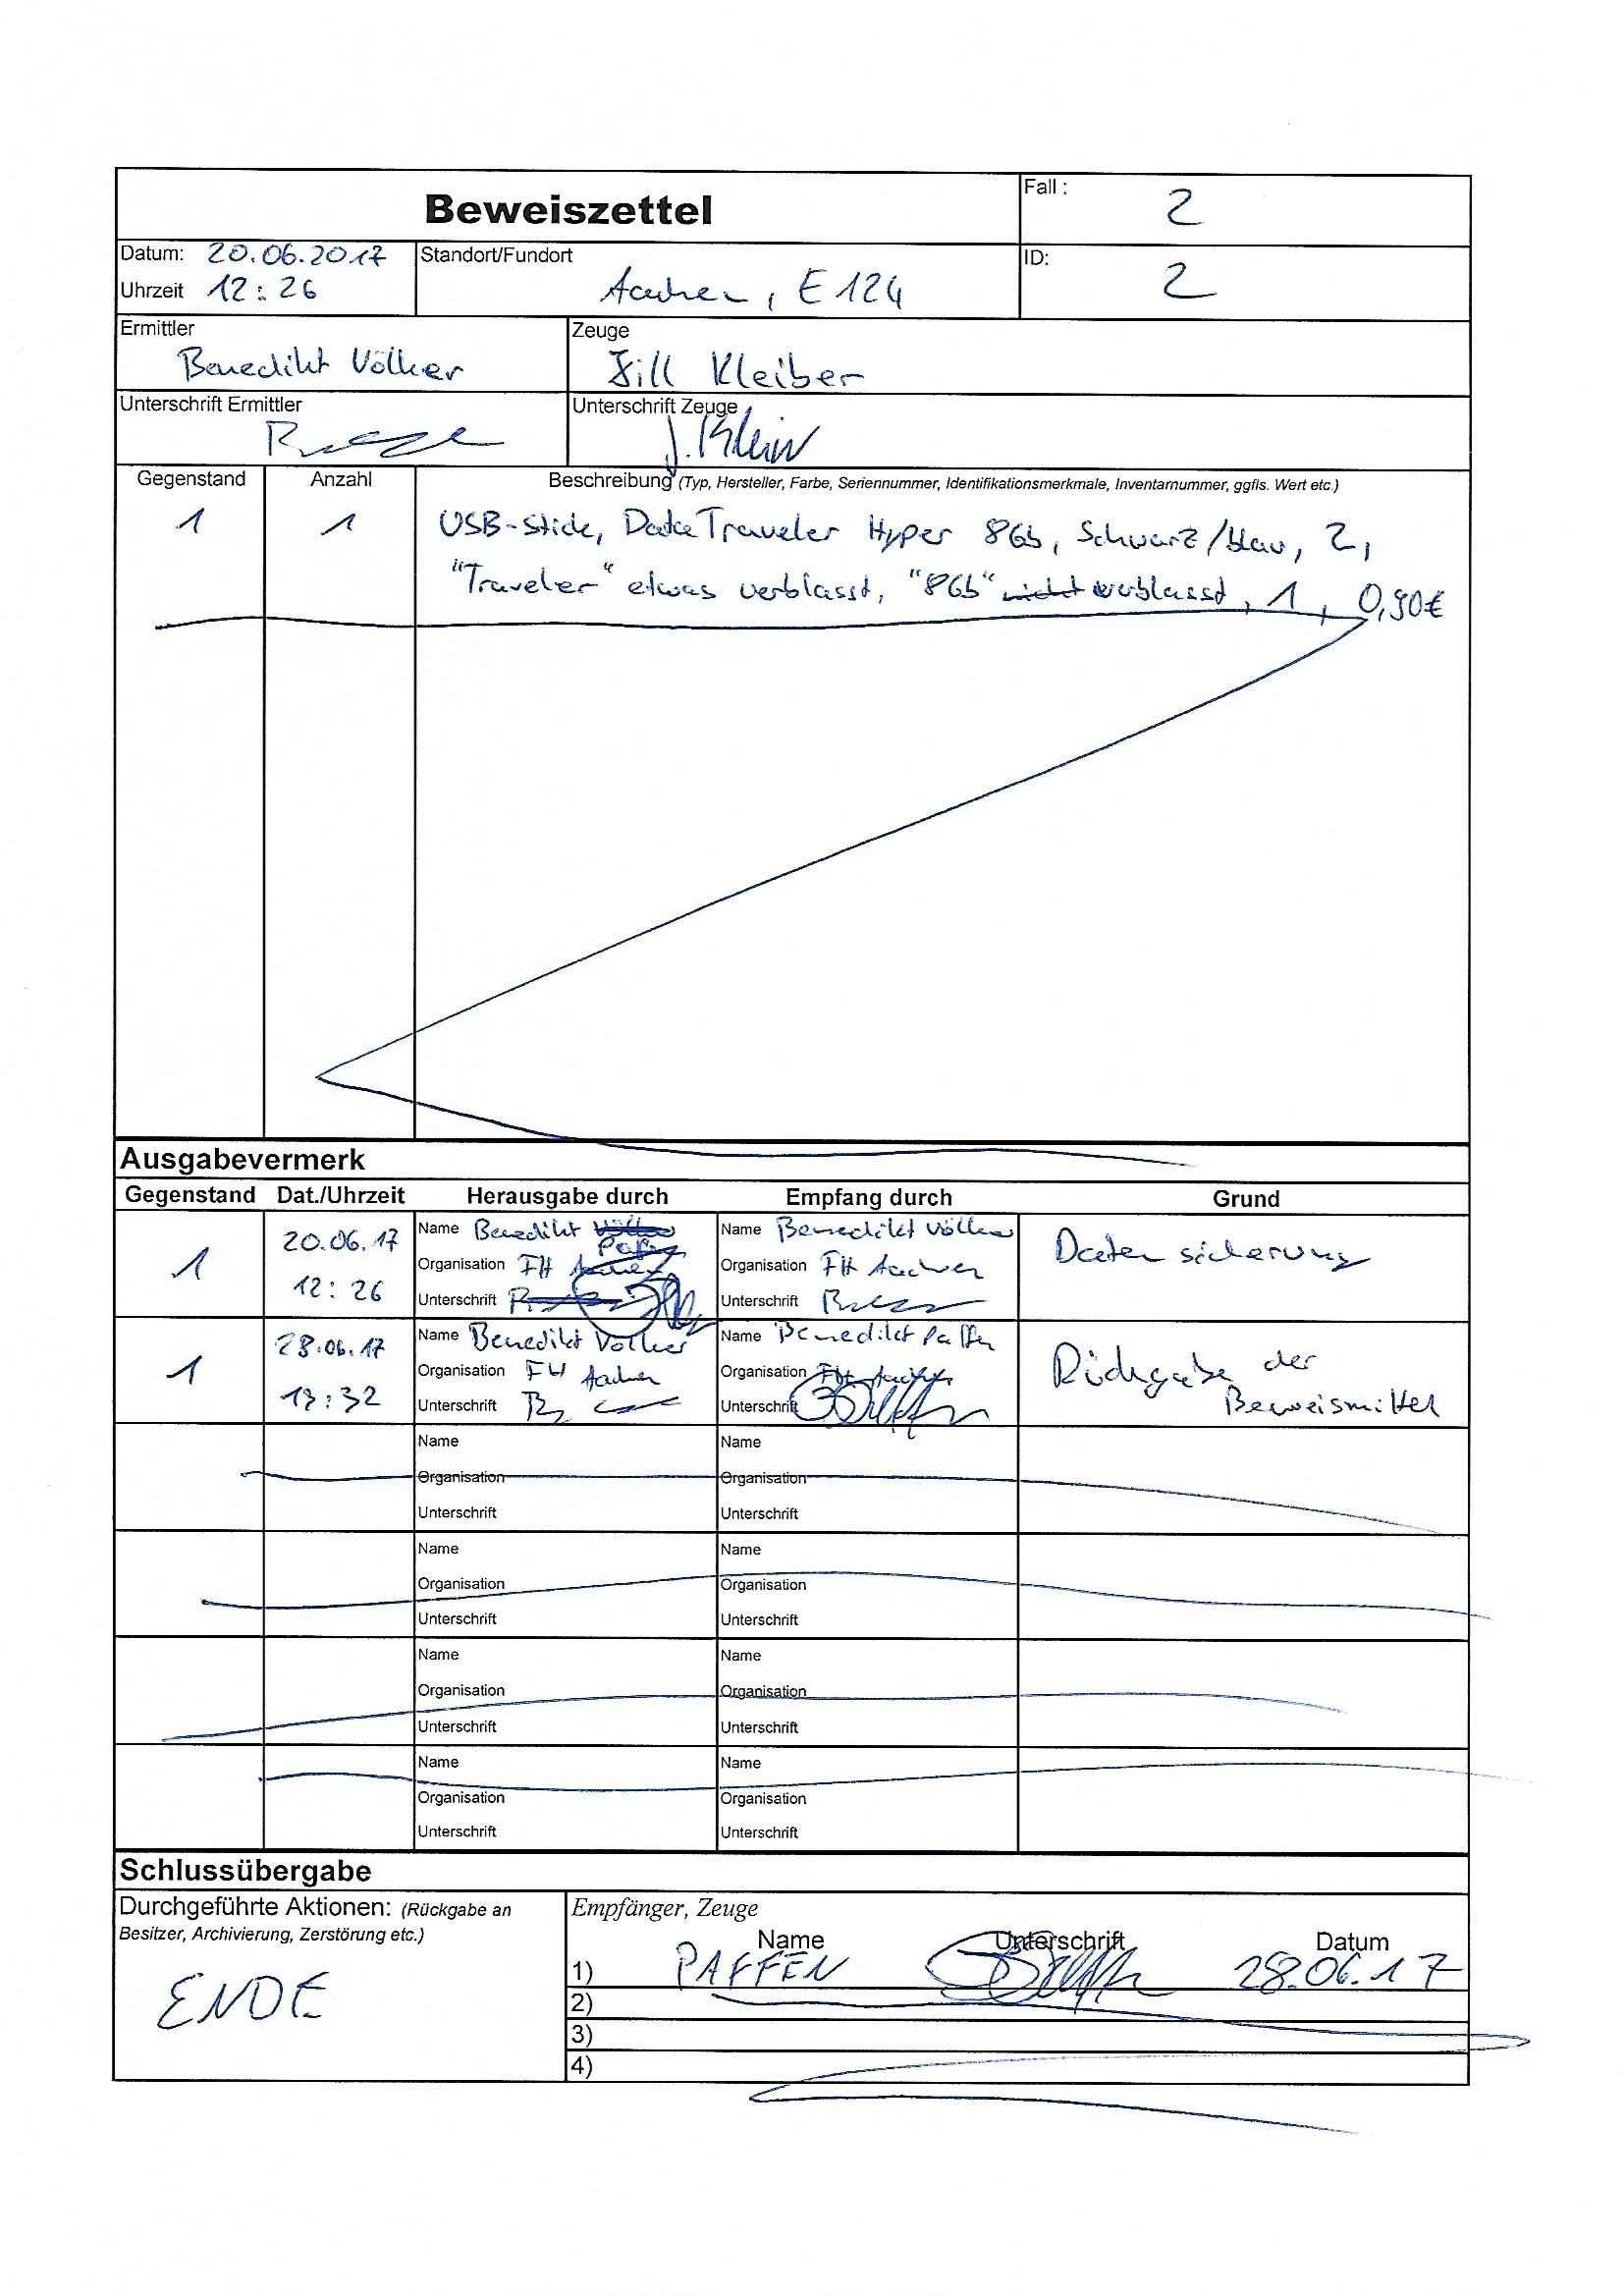 Beweiszettel
Fall : 2
Datum: 20.06.2017
Uhrzeit 12:26
Standort/Fundort
Aachen, E124
ID: 2
Ermittler
Benedikt Völker
Zeuge
Jill Kleiber
Unterschrift Ermittler
Unterschrift Zeuge
Gegenstand Anzahl Beschreibung (Typ, Hersteller, Farbe, Seriennummer, Identifikationsmerkmale, Inventarnummer, ggfls. Wert etc.)
1 1 USB-Stick, DataTraveler Hyper 8Gb, Schwarz/blau, 2,
"Traveler" etwas verblasst, "8Gb" nicht verblasst, 1, 0,90€
Ausgabevermerk
Gegenstand Dat./Uhrzeit Herausgabe durch Empfang durch Grund
1 20.06.17 12:26
Name Benedikt Völker
Organisation FH Aachen
Unterschrift
Name Benedikt Völker
Organisation FH Aachen
Unterschrift
Datensicherung
1 28.06.17 13:32
Name Benedikt Völker
Organisation FH Aachen
Unterschrift
Name Benedikt Paffen
Organisation FH Aachen
Unterschrift
Rückgabe der
Beweismittel
Name Name
Organisation Organisation
Unterschrift Unterschrift
Name Name
Organisation Organisation
Unterschrift Unterschrift
Name Name
Organisation Organisation
Unterschrift Unterschrift
Name Name
Organisation Organisation
Unterschrift Unterschrift
Schlussübergabe
Durchgeführte Aktionen: (Rückgabe an
Besitzer, Archivierung, Zerstörung etc.)
ENDE
Empfänger, Zeuge
Name Unterschrift Datum
1) PAFFEN 28.06.17
2)
3)
4)